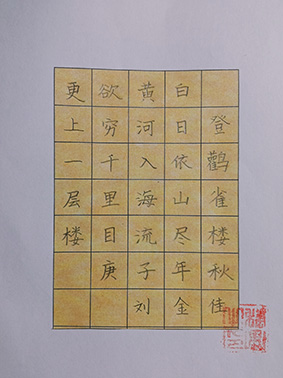 登鹳雀楼
白日依山尽
黄河入海流
欲穷千里目
更上一层楼
庚子年秋
刘金佳